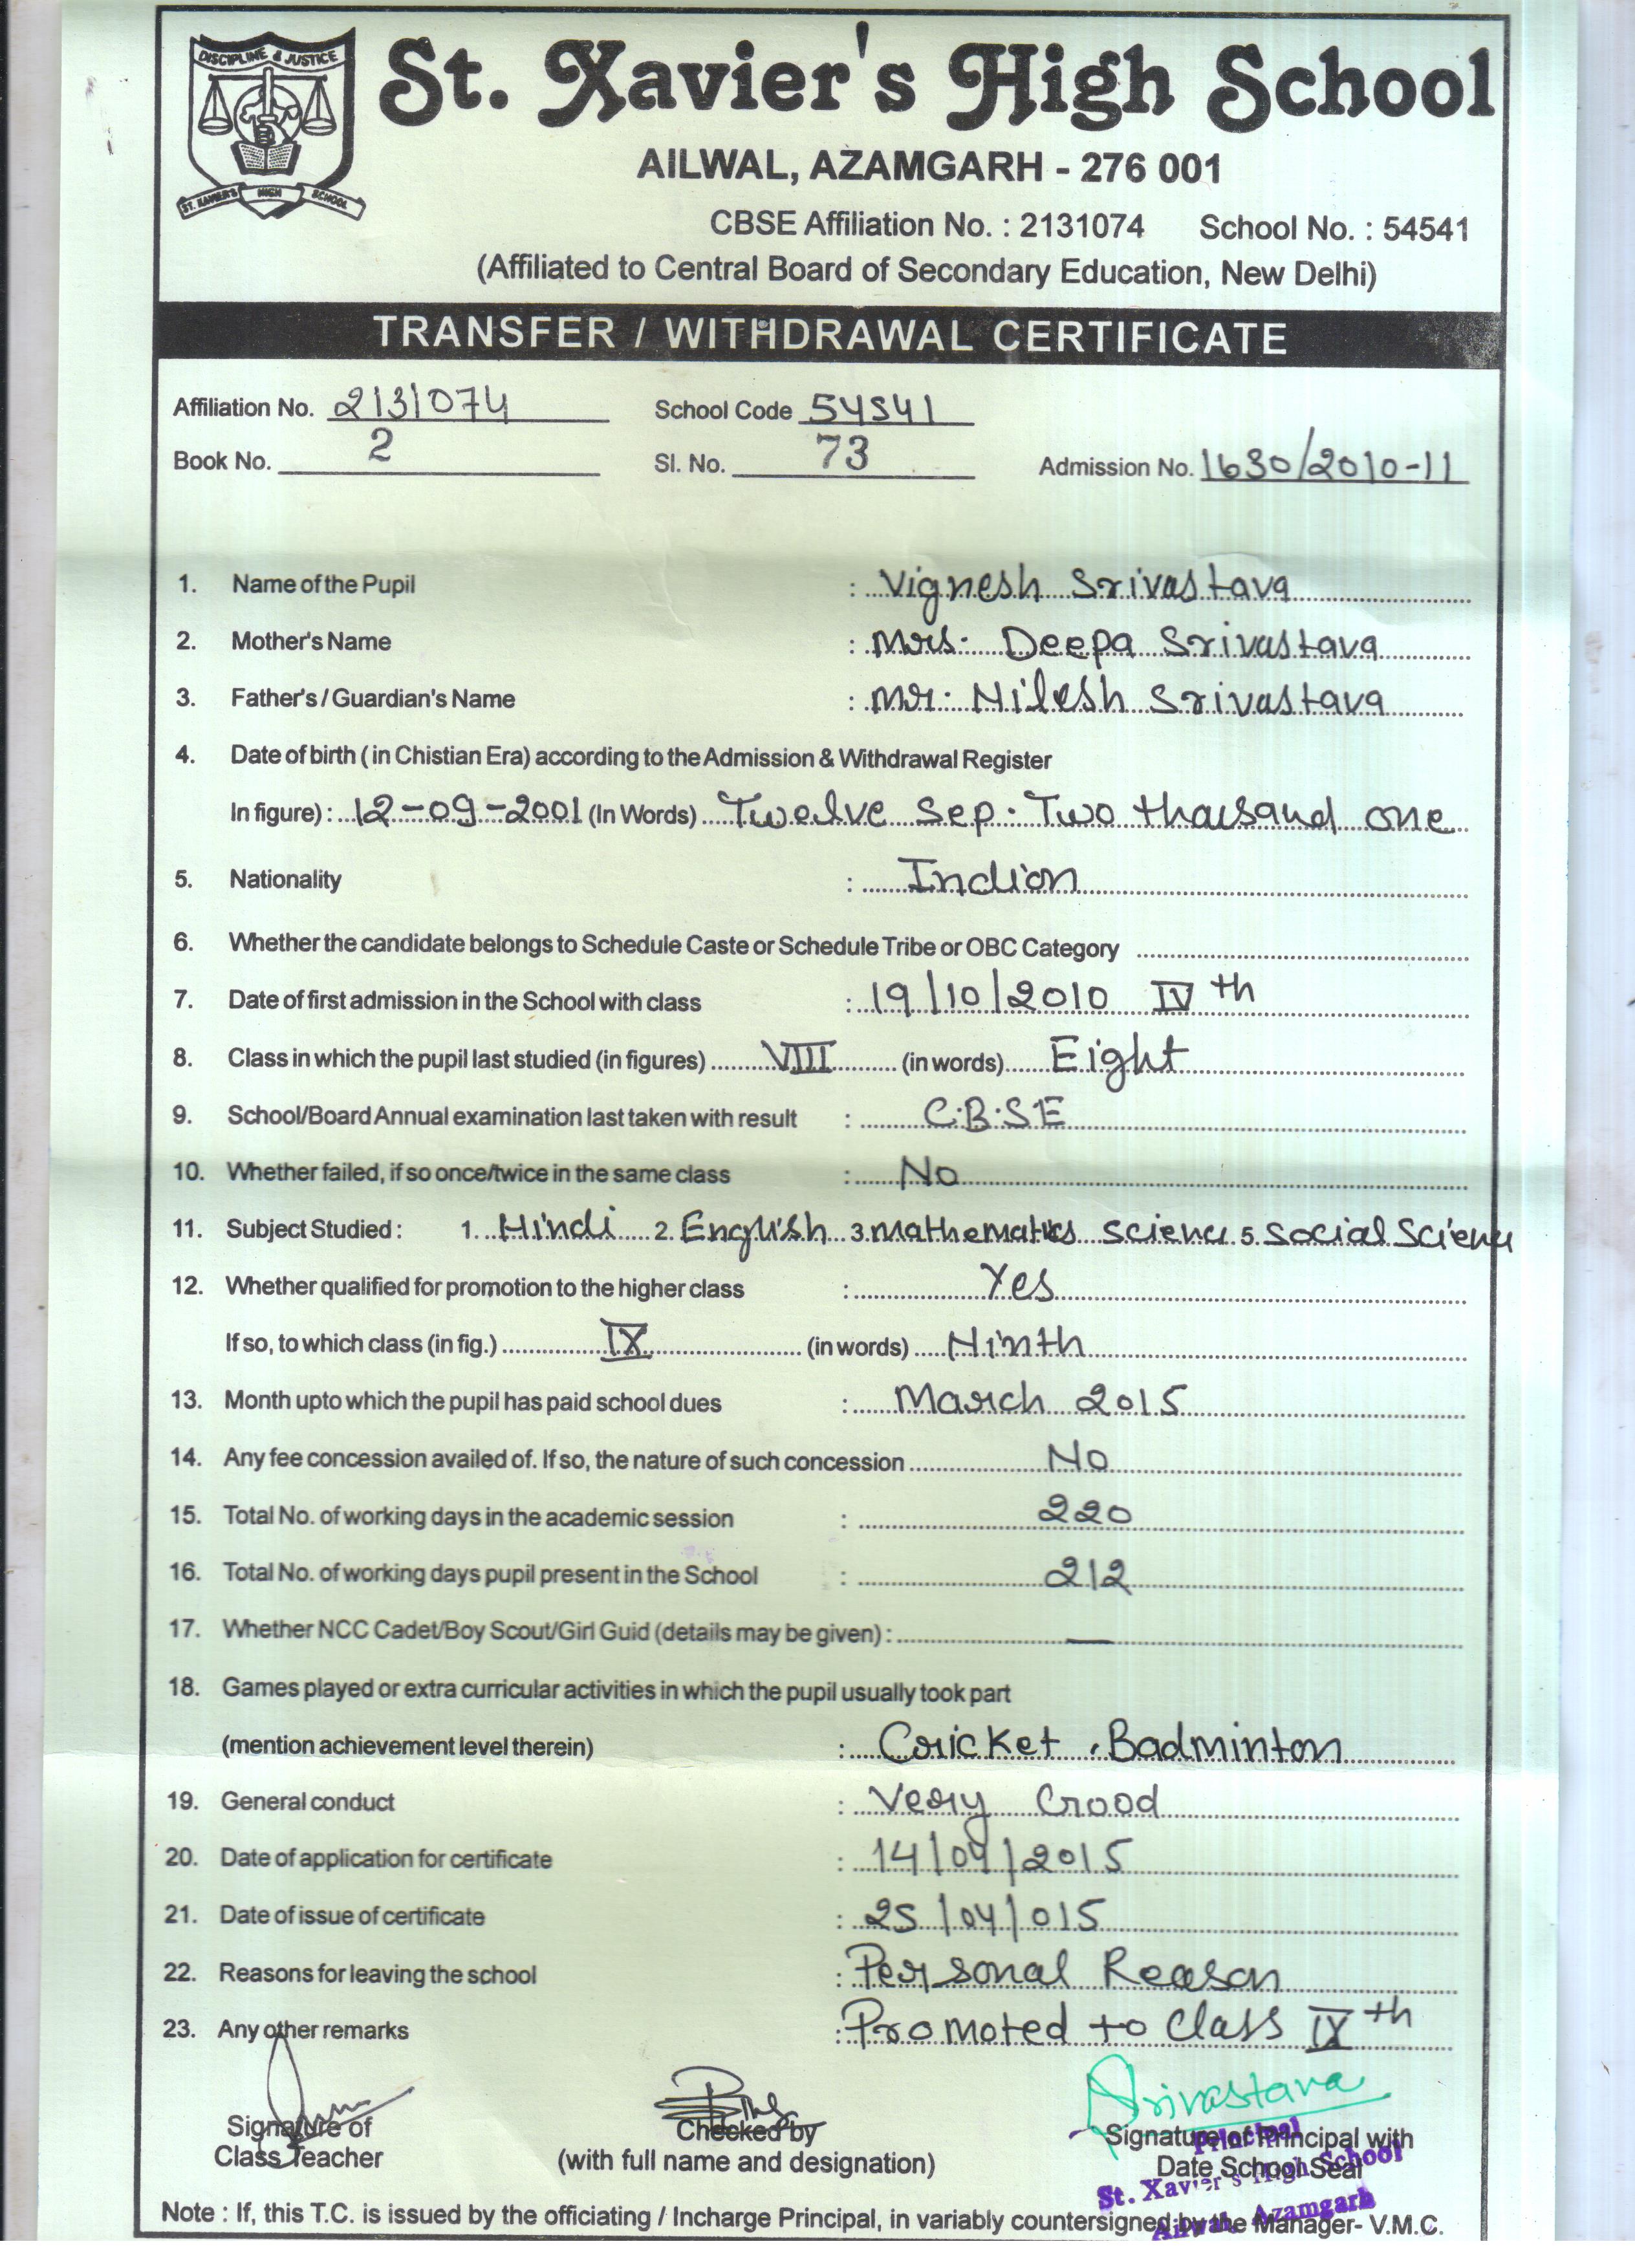 DISCIPLINE & JUSTICE
ST. XAVIER'S HIGH SCHOOL
St. Xavier's High School
AILWAL, AZAMGARH - 276 001
CBSE Affiliation No. : 2131074 School No. : 54541
(Affiliated to Central Board of Secondary Education, New Delhi)
TRANSFER / WITHDRAWAL CERTIFICATE
Affiliation No. 2131074 School Code 54541
Book No. 2 Sl. No. 73 Admission No. 1630/2010-11
1. Name of the Pupil : Vignesh Srivastava
2. Mother's Name : Mrs. Deepa Srivastava
3. Father's / Guardian's Name : Mr. Nilesh Srivastava
4. Date of birth ( in Chistian Era) according to the Admission & Withdrawal Register
In figure) : 12-09-2001 (In Words) Twelve Sep. Two thausand one
5. Nationality : Indion
6. Whether the candidate belongs to Schedule Caste or Schedule Tribe or OBC Category
7. Date of first admission in the School with class : 19/10/2010 IVth
8. Class in which the pupil last studied (in figures) VIII (in words) Eight
9. School/Board Annual examination last taken with result : C.B.S.E
10. Whether failed, if so once/twice in the same class : No
11. Subject Studied : 1. Hindi 2. English 3. mathematics science 5. Social Science
12. Whether qualified for promotion to the higher class : Yes
If so, to which class (in fig.) IX (in words) Ninth
13. Month upto which the pupil has paid school dues : March 2015
14. Any fee concession availed of. If so, the nature of such concession No
15. Total No. of working days in the academic session : 220
16. Total No. of working days pupil present in the School : 212
17. Whether NCC Cadet/Boy Scout/Girl Guid (details may be given) : —
18. Games played or extra curricular activities in which the pupil usually took part
(mention achievement level therein) : Cricket, Badminton
19. General conduct : Very Good
20. Date of application for certificate : 14/04/2015
21. Date of issue of certificate : 25/04/015
22. Reasons for leaving the school : Personal Reason
23. Any other remarks : Promoted to Class IXth
Srivastava
Signature of Checked by Signature of Principal with
Class Teacher (with full name and designation) Date School Seal
Principal
St. Xavier's High School
Ailwal, Azamgarh
Note : If, this T.C. is issued by the officiating / Incharge Principal, in variably countersigned by the Manager- V.M.C.